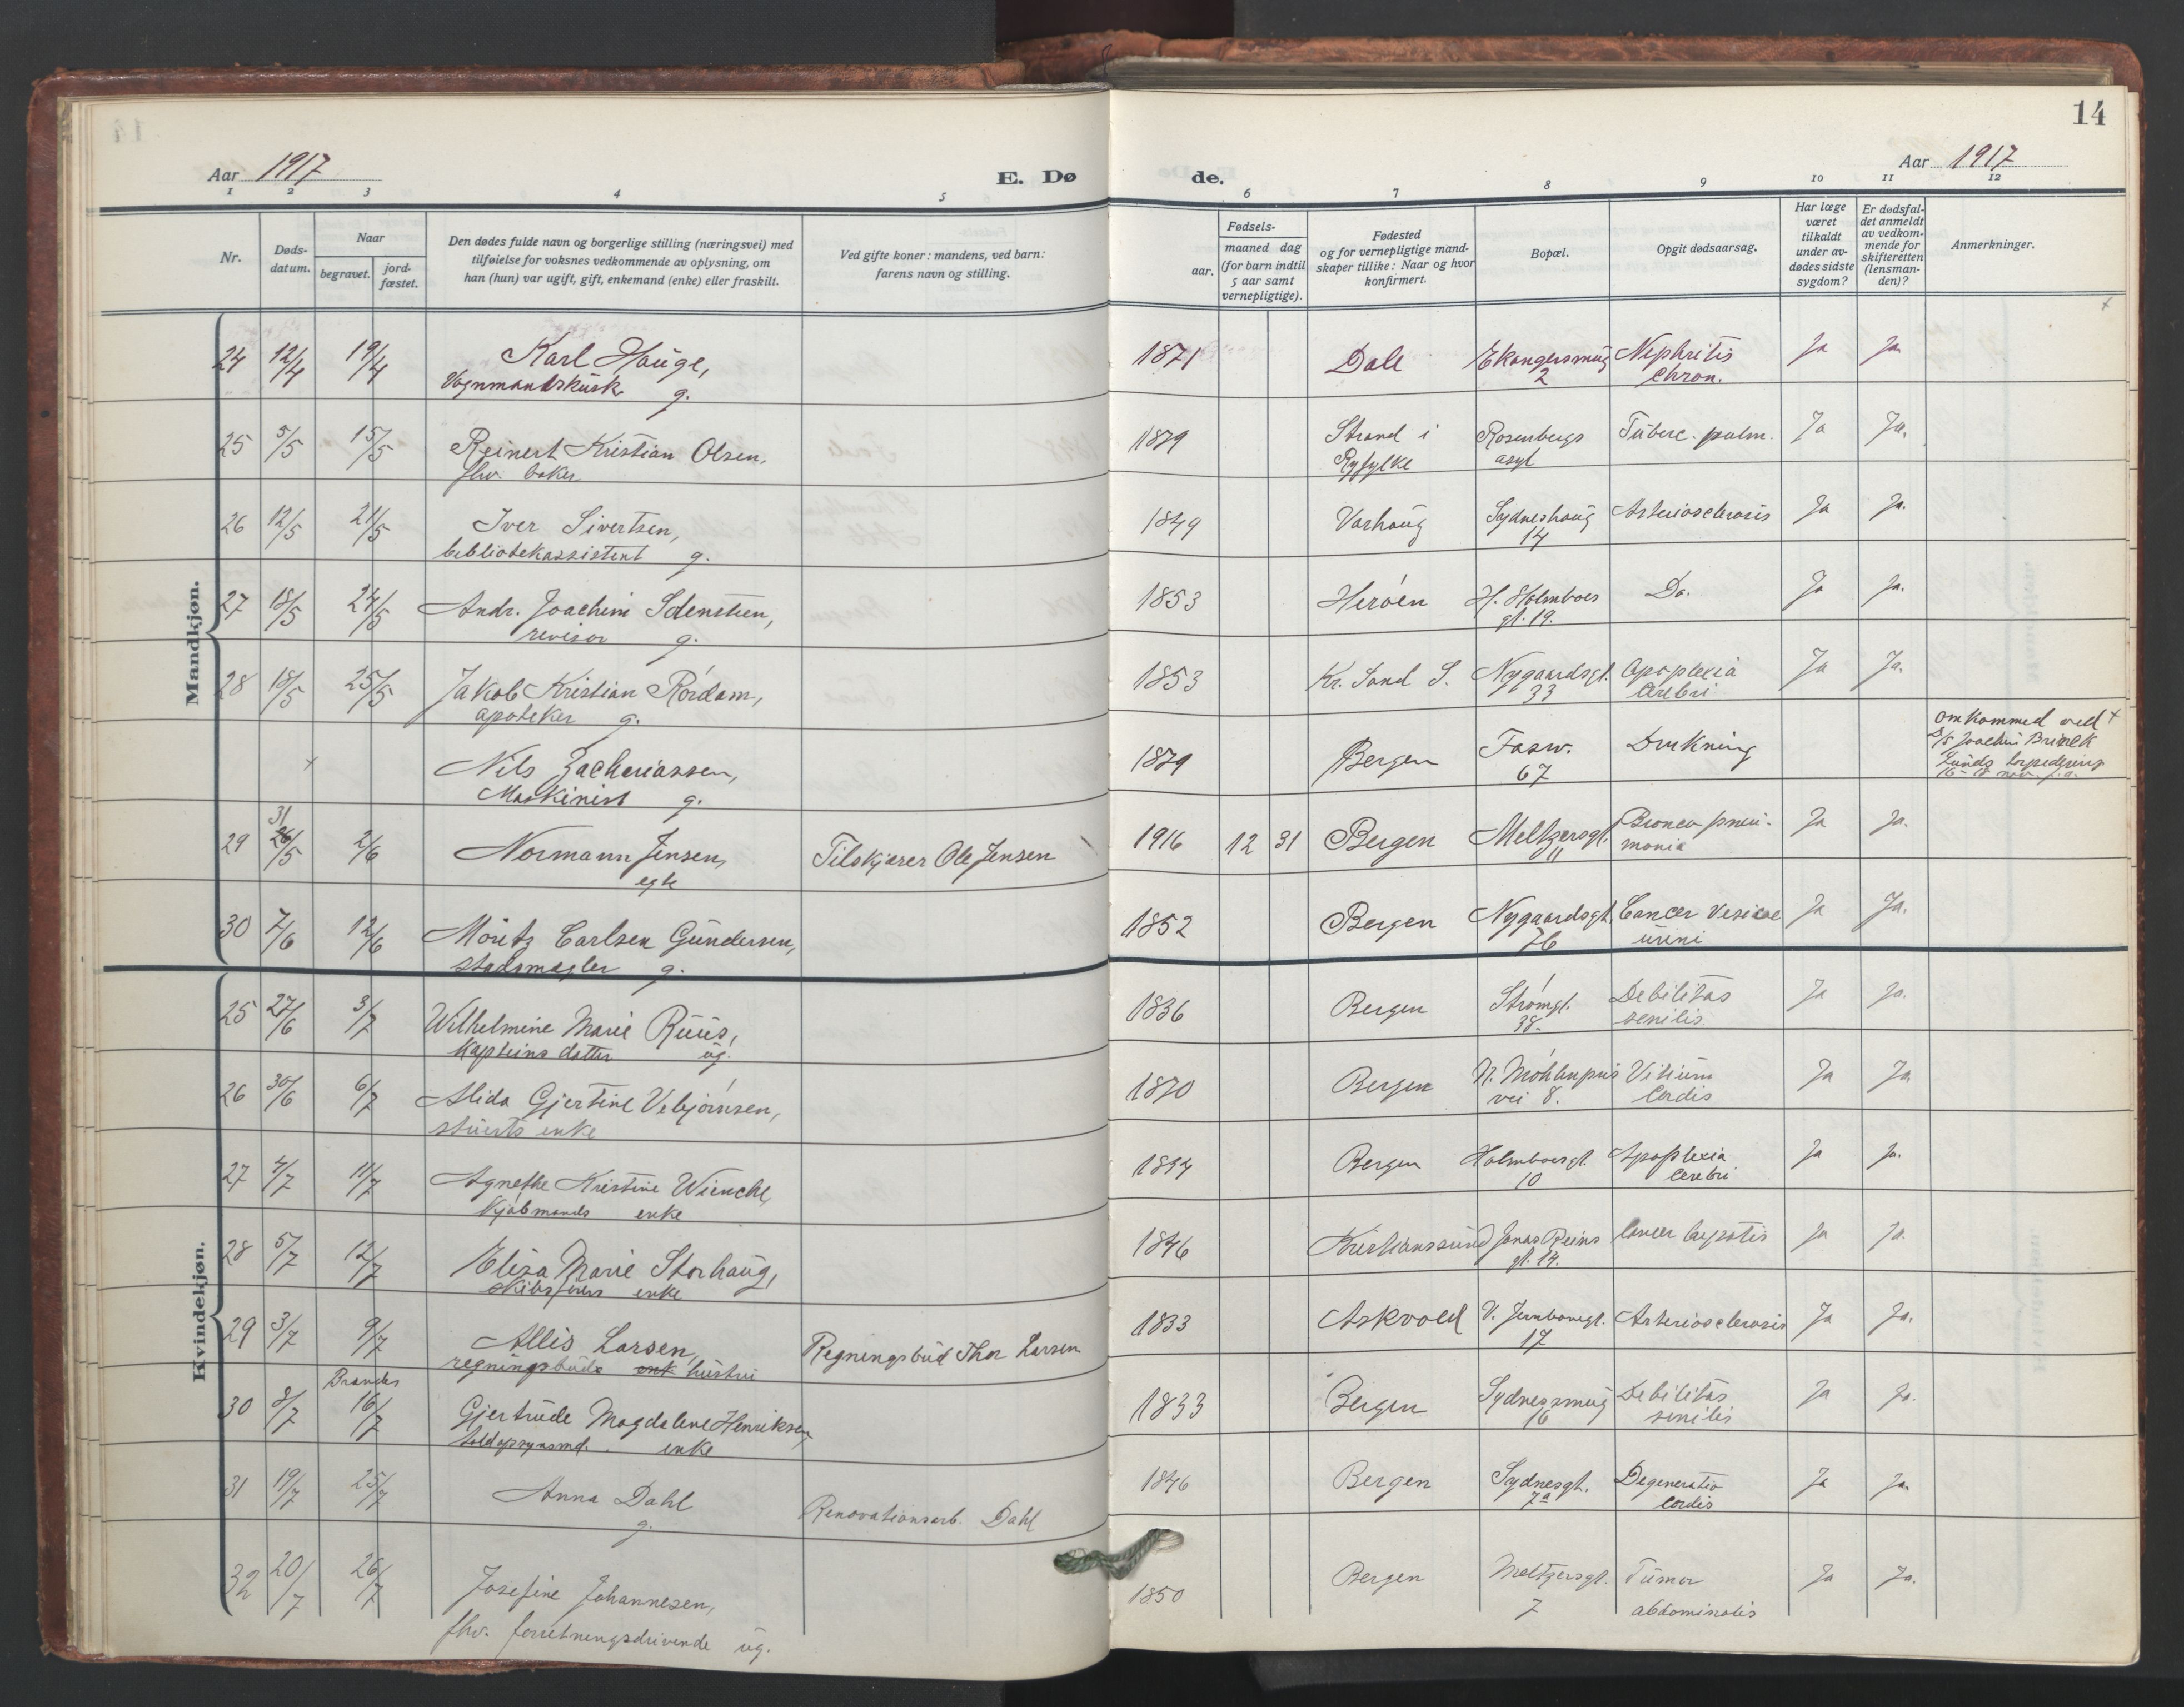 14
Aar 1917
E. Dø
de.
Aar 1917
1 2 3 4 5 6 7 8 9 10 11 12
Nr.
Døds-
datum.
Naar
begravet.
jord-
fæstet.
Den dødes fulde navn og borgerlige stilling (næringsvei) med
tilføielse for voksnes vedkommende av oplysning, om
han (hun) var ugift, gift, enkemand (enke) eller fraskilt.
Ved gifte koner: mandens, ved barn:
farens navn og stilling.
Fødsels-
aar.
maaned dag
(for barn indtil
5 aar samt
vernepligtige).
Fødested
og for vernepligtige mand-
skaper tillike: Naar og hvor
konfirmert.
Bopæl.
Opgit dødsaarsag.
Har læge
været
tilkaldt
under av-
dødes sidste
sygdom?
Er dødsfal-
det anmeldt
av vedkom-
mende for
skifteretten
(lensman-
den)?
Anmerkninger.
Mandkjøn.
24 12/4 19/4 Karl Hauge, 1871 Dale Ekangersmug Nephritis Ja Ja
Vognmandskusk g. 2 Chron.
25 5/5 15/5 Reinert Kristian Olsen, 1879 Strand i Rosenbergs Tuberc. pulm. Ja Ja.
fhv. baker Ryfylke asyl
26 12/5 21/5 Iver Sivertsen, 1849 Varhaug Sydneshaug Arteriosclerosis Ja Ja.
bibliotekassistent g. 14
27 18/5 24/5 Andr. Joachim Idensteen, 1853 Herøen H. Holmboes Do. Ja Ja.
revisor g. gt. 19.
28 18/5 25/5 Jakob Kristian Rördam, 1853 Kr. Sand S. Nygaardsgt. Apoplexia Ja Ja.
apoteker g. 33 Cerebri
+ Nils Zachariassen, 1879 Bergen Fasw. Drukning omkommed ved +
Maskinist g. 67 D/S Joachim Brinck
Lunds torpedering
nov. f. a.
31
29 26/5 2/6 Normann Jensen, Tilskjærer Ole Jensen 1916 12 31 Bergen Meltzersgt. Bronco pneu- Ja Ja.
egte 11 monia
30 7/6 12/6 Moritz Carlsen Gundersen, 1852 Bergen Nygaardsgt. Cancer vesicae Ja Ja.
stadsmægler g. 76 urini
Kvindekjøn.
25 27/6 3/7 Wilhelmine Marie Ruus, 1836 Bergen Strømgt. Debilitas Ja Ja.
Kapteins datter ug. 38. senilis
26 30/6 6/7 Alida Gjertine Vebjørnsen, 1870 Bergen N. Möhlenpris Vitium Ja Ja
stuerts enke vei 8. Cordis
27 4/7 11/7 Agnethe Kristine Wiencke, Bergen Holmboesgt. Apoplexia Ja Ja.
Kjøbmands enke 10 Cerebri
28 5/7 12/7 Eliza Marie Storhaug, 1846 Kristianssund Jonas Reins Cancer hepatis Ja Ja.
Skibsførers enke gt. 14.
29 3/7 9/7 Allis Larsen, Regningsbud Thor Larsen 1833 Askvold V. Jernbanegt. Arteriosclerosis Ja Ja.
regningsbuds enk hustru 17
Brændes
30 8/7 16/7 Gjertrude Magdalene Henriksen, 1833 Bergen Sydnessmug Debilitas Ja Ja.
toldopsynsmd. enke 16 senilis
31 19/7 25/7 Anna Dahl Renovationsarb. Dahl 1846 Bergen Sydnesgt. Degeneratio Ja Ja.
g. 7a Cordis
32 20/7 26/7 Josefine Johannesen, 1850 Bergen Meltzersgt. Tumor Ja Ja.
fhv. forretningsdrivende ug. 7 abdominalis